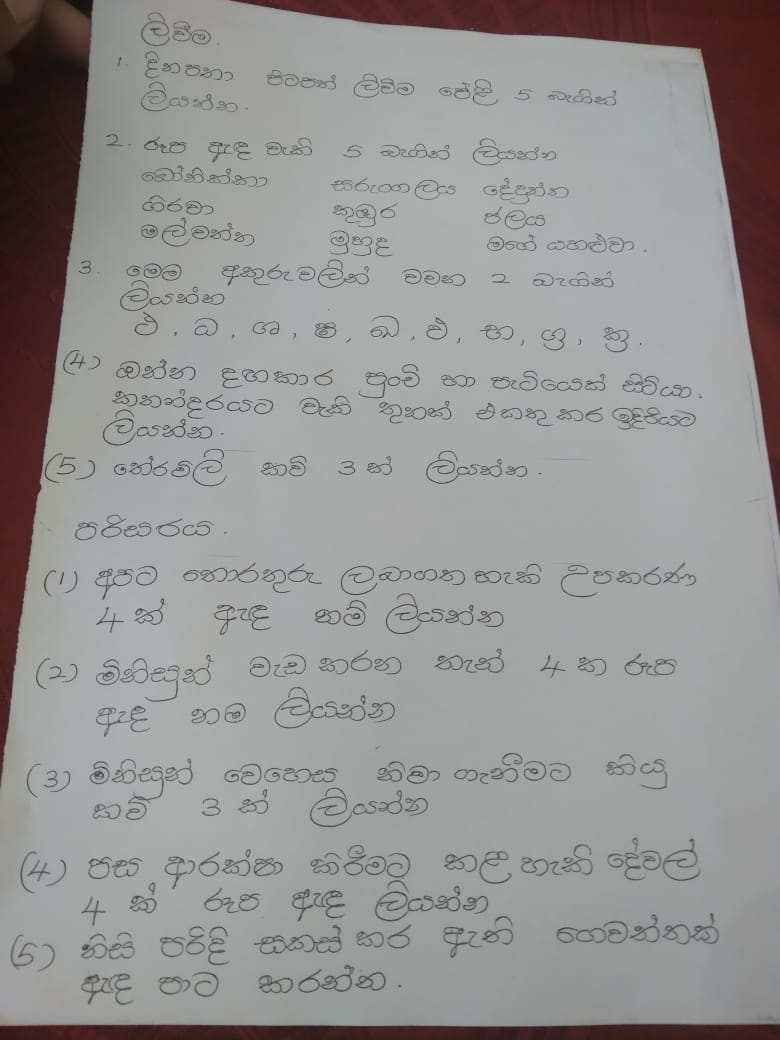 ලිවීම.
1. දිනපතා පිටපත් ලිවීම පේළි 5 බැගින්
ලියන්න.
2. රූප ඇඳ වැකි 5 බැගින් ලියන්න
බෝනික්කා සරුංගලය දේදුන්න
ගිරවා කුඹුර ජලය
මල්වත්ත මුහුද මගේ යහළුවා.
3. මෙම අකුරුවලින් වචන 2 බැගින්
ලියන්න
ථ, ධ, ශ, ෂ, ඛ, ඵ, භ, ශ්‍ර, ක්‍ර.
(4) ඔන්න දඟකාර පුංචි හා පැටියෙක් සිටියා.
කතන්දරයට වැකි තුනක් එකතු කර ඉදිරියට
ලියන්න.
(5) තේරවිලි කවි 3ක් ලියන්න.
පරිසරය.
(1) අපට තොරතුරු ලබාගත හැකි උපකරණ
4ක් ඇඳ නම් ලියන්න
(2) මිනිසුන් වැඩ කරන තැන් 4ක රූප
ඇඳ නම ලියන්න
(3) මිනිසුන් වෙහෙස නිවා ගැනීමට කියු
කවි 3ක් ලියන්න
(4) පස ආරක්ෂා කිරීමට කළ හැකි දේවල්
4ක් රූප ඇඳ ලියන්න
(5) නිසි පරිදි සකස් කර ඇති ගෙවත්තක්
ඇඳ පාට කරන්න.